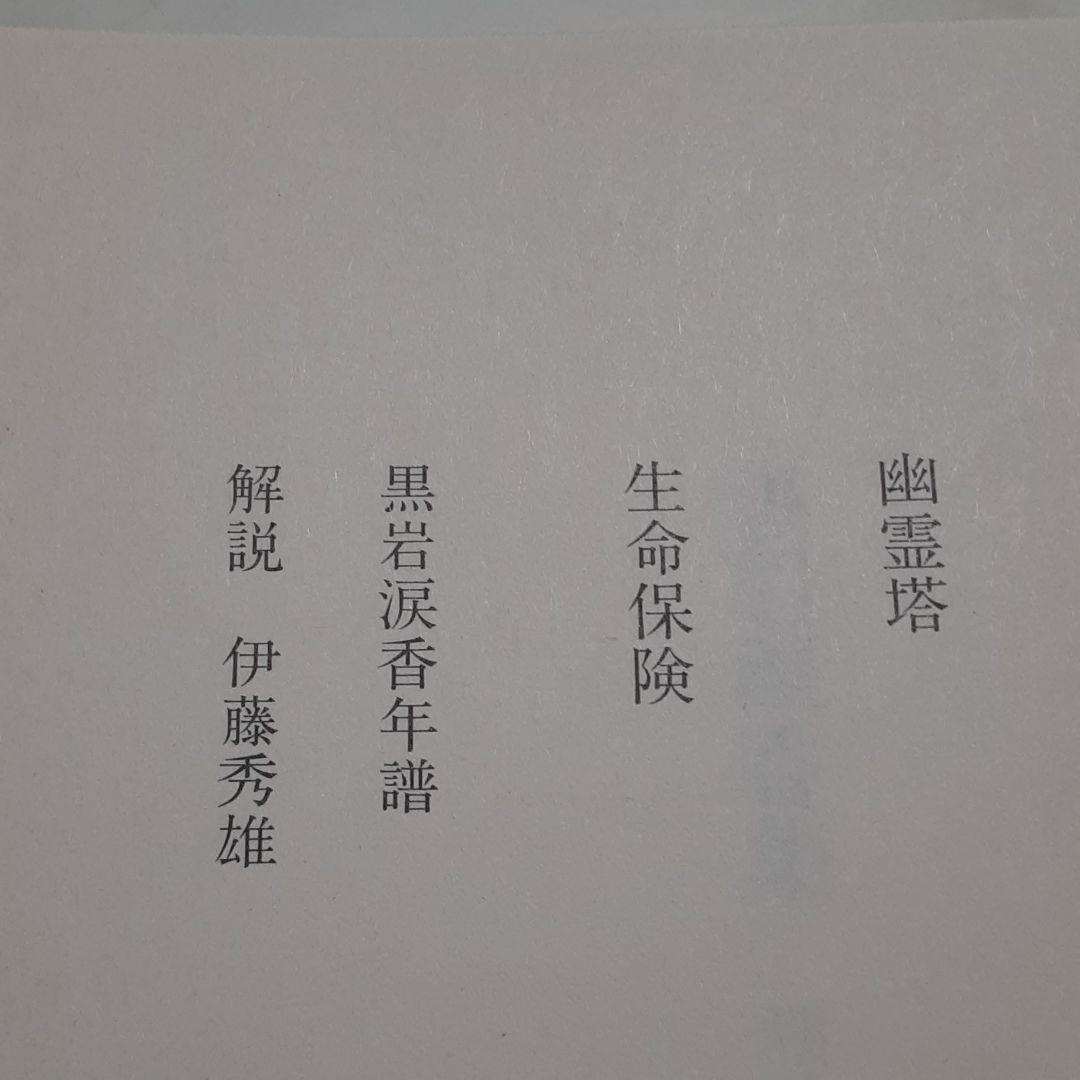 幽霊塔
生命保険
黒岩涙香年譜
解説　伊藤秀雄